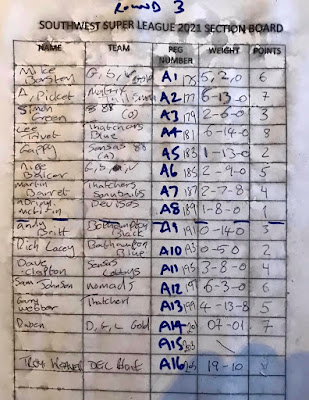 ROUND 3
SOUTHWEST SUPER LEAGUE 2021 SECTION BOARD
NAME TEAM PEG NUMBER WEIGHT POINTS
Mike G, b, A1 5, 2, 0 6
A, Picket A2 6-13-0 7
Simon Green 88 (O) A3 179 2-6-0 3
Lee Trivet Thatchers Blue A4 181 6-14-0 8
Gappy Sensas 88 (A) A5 183 1-13-0 2
Nige G, b, A6 185 2-9-0 5
Martin Barret Thatchers A7 187 2-7-8 4
Devises A8 189 1-8-0 1
Andy Britt A9 191 0-14-0 3
Rich Lacey Blue A10 193 0-5-0 2
Dave Clapton Sensas A11 195 3-8-0 4
Sam Johnson Nomads A12 197 6-3-0 6
Garry Webber Thatchers A13 199 4-13-8 5
D, G, L Gold A14 201 07-01 7
A15 203
TROY WEAVER A16 205 19-10